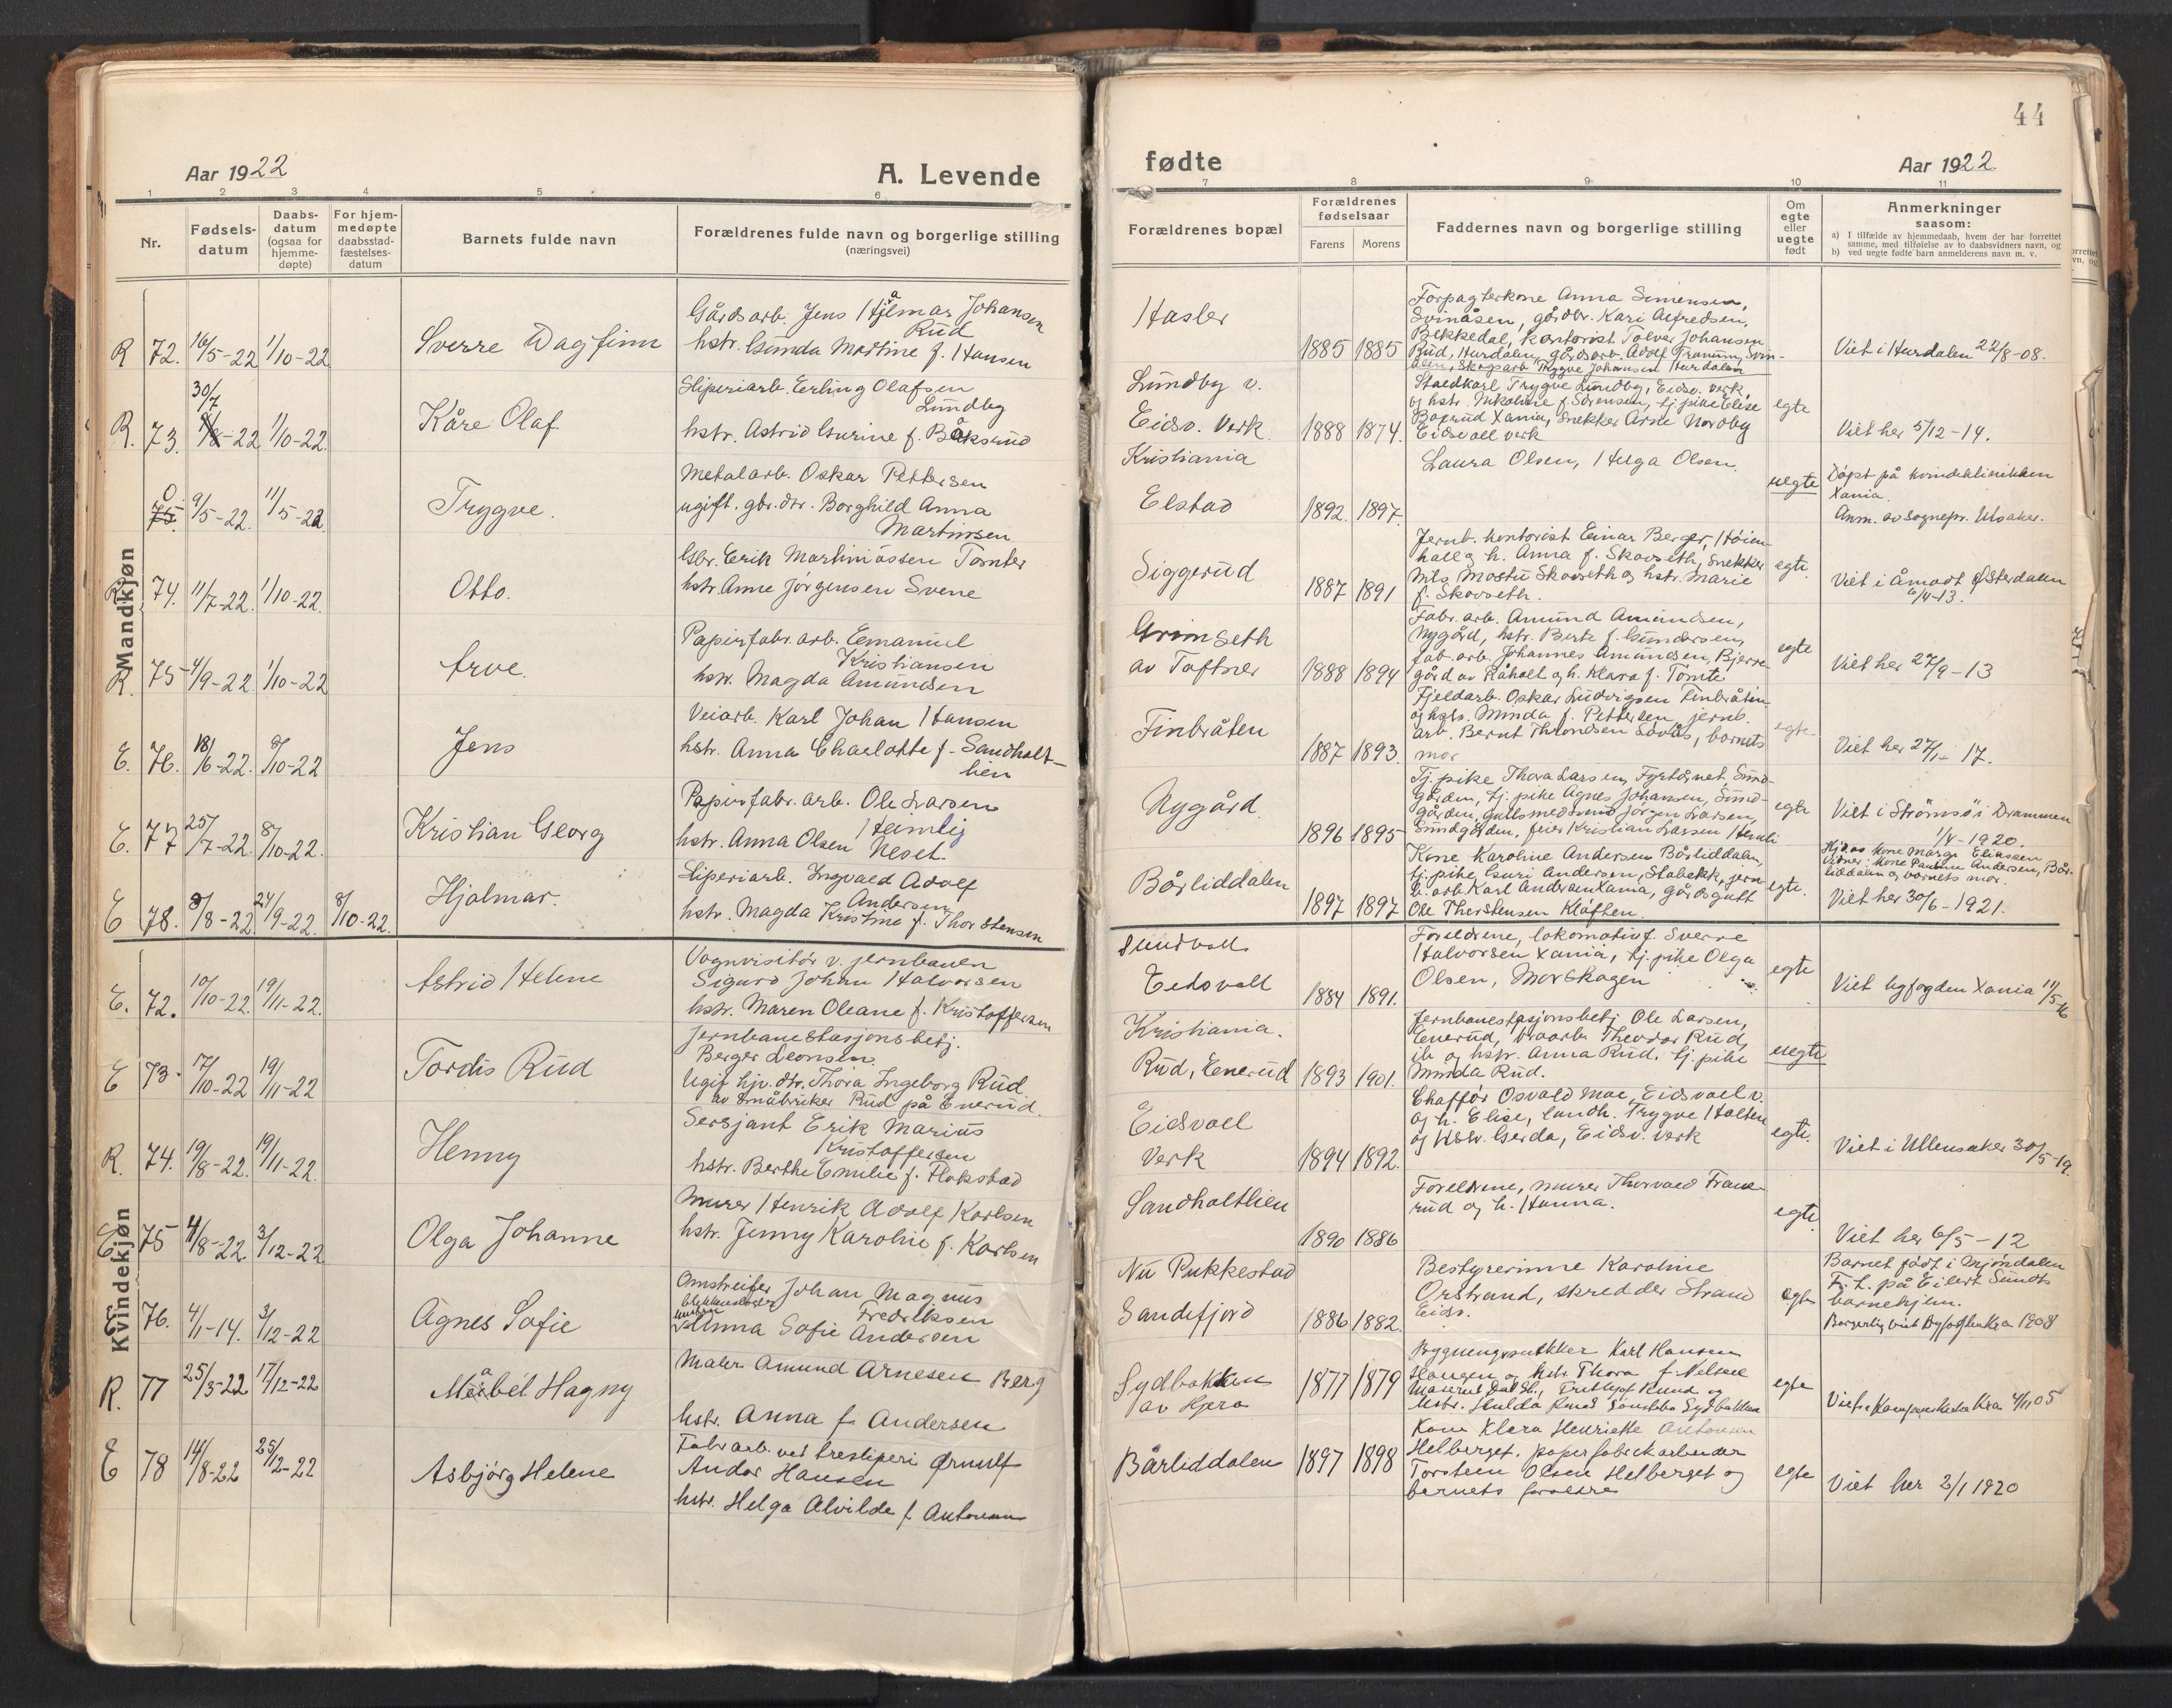 44
Aar 1922
A. Levende
fødte
Aar 1922
1 2 3 4 5 6 7 8 9 10 11
Nr.
Fødsels-
datum
Daabs-
datum
(ogsaa for
hjemme-
døpte)
For hjem-
medøpte
daabsstad-
fæstelses-
datum
Barnets fulde navn
Forældrenes fulde navn og borgerlige stilling
(næringsvei)
Forældrenes bopæl
Forældrenes
fødselsaar
Farens
Morens
Faddernes navn og borgerlige stilling
Om
egte
eller
uegte
født
Anmerkninger
saasom:
a) I tilfælde av hjemmedaab, hvem der har forrettet
samme, med tilføielse av to daabsvidners navn, og
b) ved uegte fødte barn anmelderens navn m. v.
Mandkjøn
R 72. 16/5-22 1/10-22
Sverre Dagfinn
Gårdsarb. Jens Hjalmar Johansen
Rud
hstr. Gunda Martine f. Hansen
Hasler
1885 1885
Forpagterkone Anna Simensen,
Svinåsen, gårdbr. Kari Alfredsen,
Bekkedal, kontorist Tolver Johansen
Rud, Hurdalen, gårdsarb. Adolf
Skogsarb Trygve Johansen Hurdalen
Viet i Hurdalen 22/8-08.
R. 73. 30/7 -22 1/10-22
Kåre Olaf
Sliperiarb. Erling Olafsen
Lundby
hstr. Astrid Gurine f. Båksrud
Lundby v.
Eidsv. Verk
1888 1874.
Staldkarl Trygve Lundby, Eidsv. verk,
og hstr. f. Sørensen, tj. pike Elise
Xania, Snekker Arne Nordby
Eidsvoll verk
egte
Viet her 5/12-14.
0 75. 9/5-22. 11/5-22
Trygve.
Metalarb. Oskar Pettersen
ugift. gbr. dtr. Borghild Anna
Martinsen
Kristiania
Elstad
1892. 1897.
Laura Olsen, Helga Olsen.
uegte
Døpt på kvindeklinikken
Xania.
Anm. av sognepr. Utaaker.
R 74. 11/7-22. 1/10-22.
Otto.
Gbr. Erik Martiniussen Tomter
hstr. Anne Jørgensen Svene
Siggerud
1887 1891
Jernb. kontorist Einar Berger, Høien-
hall og h. Anna f. Skovseth, Snekker
Nils Mostu Skovseth og hstr. Marie
f. Skovseth.
egte.
Viet i Åmodt Østerdalen
6/4-13.
R. 75 4/9-22. 1/10-22
Arve.
Papirfabr. arb. Emanuel
Kristiansen
hstr. Magda Amundsen
Grimseth
av Toftner
1888 1894
Fabr. arb. Amund Amundsen,
Nygård, hstr. Berte f. Gundersen,
fab. arb. Johannes Amundsen, Bjerre-
gård av Råholt og h. Klara f. Tomte
egte
Viet her 27/9-13
E. 76. 18/6-22. 8/10-22
Jens
Veiarb. Karl Johan Hansen
hstr. Anna Charlotte f. Sandholt-
lien
Finbråten
1887 1893.
Fjeldarb. Oskar Ludvigsen Finbråten
og hstr. Minda f. Pettersen, jernb.
arb. Bernt Throndsen, barnets
mor
egte
Viet her 27/1-17.
E. 77 25/7-22. 8/10-22.
Kristian Georg
Papirfabr. arb. Ole Larsen
Heimlig
hstr. Anna Olsen Neset.
Nygård.
1896 1895
Tj. pike Thora Larsen, Fyrtårnet, Sund-
gården, tj. pike Agnes Johansen, Sund-
gården, gullsmedsvend Jørgen Larsen,
Sundgården, feier Kristian Larsen
egte
Viet i Strømsø i Drammen
1/4-1920.
E 78. 8/8-22 24/9-22. 8/10-22.
Hjalmar.
Sliperiarb. Ingvald Adolf
Andersen
hstr. Magda Kristine f. Thorstensen
Bårliddalen
1897 1897
Kone Karoline Andersen Bårliddalen,
tj. pike Guri Andersen, Stabekk, jern-
b. arb Karl Andersen Xania, gårdsgutt
Ole Thorstensen Kløften.
egte.
Hjd. av kone Marga Eliassen
Vidner: Kone Pauline Andersen, Bår-
liddalen og barnets mor.
Viet her 30/6-1921.
Kvindekjøn
E. 72. 10/10-22. 19/11-22.
Astrid Helene
Vognvisitør v. jernbanen
Sigurd Johan Halvorsen
hstr. Maren Oleane f. Kristoffersen
Sundvoll
Eidsvoll
1884 1891.
Foreldrene, lokomotivf. Sverre
Halvorsen Xania, tj. pike Olga
Olsen, Morskogen
egte
Viet byfogden Xania 11/5-16
E 73. 17/10-22 19/11-22
Tordis Rud
Jernbanestasjonsbetj.
Berger Leonsen.
Ugif hjv. dtr. Thora Ingeborg Rud
av småbruker Rud på Enerud.
Kristiania.
Rud, Enerud
1893 1901.
Jernbanestasjonsbetj. Ole Larsen,
Enerud, Theodor Rud,
ib og hstr. Anna Rud. tj. pike
Minda Rud.
uegte
R. 74. 19/8-22. 19/11-22.
Henny
Sersjant Erik Marius
Kristoffersen
hstr. Berthe Emilie f. Flokstad
Eidsvoll
Verk
1894 1892.
Chaffør Osvald Moe, Eidsvoll v.
og h. Elise, Landh. Trygve Holten
og hstr. Gerda, Eidsv. verk
egte.
Viet i Ullensaker 30/5-19.
E. 75 4/8-22. 3/12-22
Olga Johanne
Murer Henrik Adolf Karlsen
hstr. Jenny Karoline f. Karlsen
Sandholtlien
1890 1886
Foreldrene, murer Thorvald
rud og h. Hanna.
egte
Viet her 6/5-12
E 76. 4/1-14. 3/12-22
Agnes Sofie
Omstreifer Johan Magnus
Fredriksen
Anna Sofie Andersen
Nu Pukkestad
Sandefjord
1886 1882.
Bestyrerinne Karoline
Orstrand, skredder Strand
Eidsv.
egte
Barnet født i Mjøndalen
F. t. på Eilert Sundts
barnehjem.
Borgerlig viet Byfogden Kra 1908
R. 77 25/3-22 17/12-22
Måbél Hagny
Maler Amund Arnesen Berg
hstr. Anna f. Andersen
Sydbakken
av Hjera
1877 1879
Bygningssnekker Karl Hansen
Haugen og hstr. Thora f. Nilsen
egte
4/11 05
E 78 14/8-22 25/12-22
Asbjørg Helene
Fabr arb. ved tresliperi Ørnulf
Andor Hansen
hstr. Helga Alvilde f. Antonsen
Bårliddalen
1897 1898
Kone Klara Henriette Antonsen
Helberget. papirfabrikarbeider
Torstein Olsen Helberget og
barnets foreldre
egte
Viet her 2/1 1920